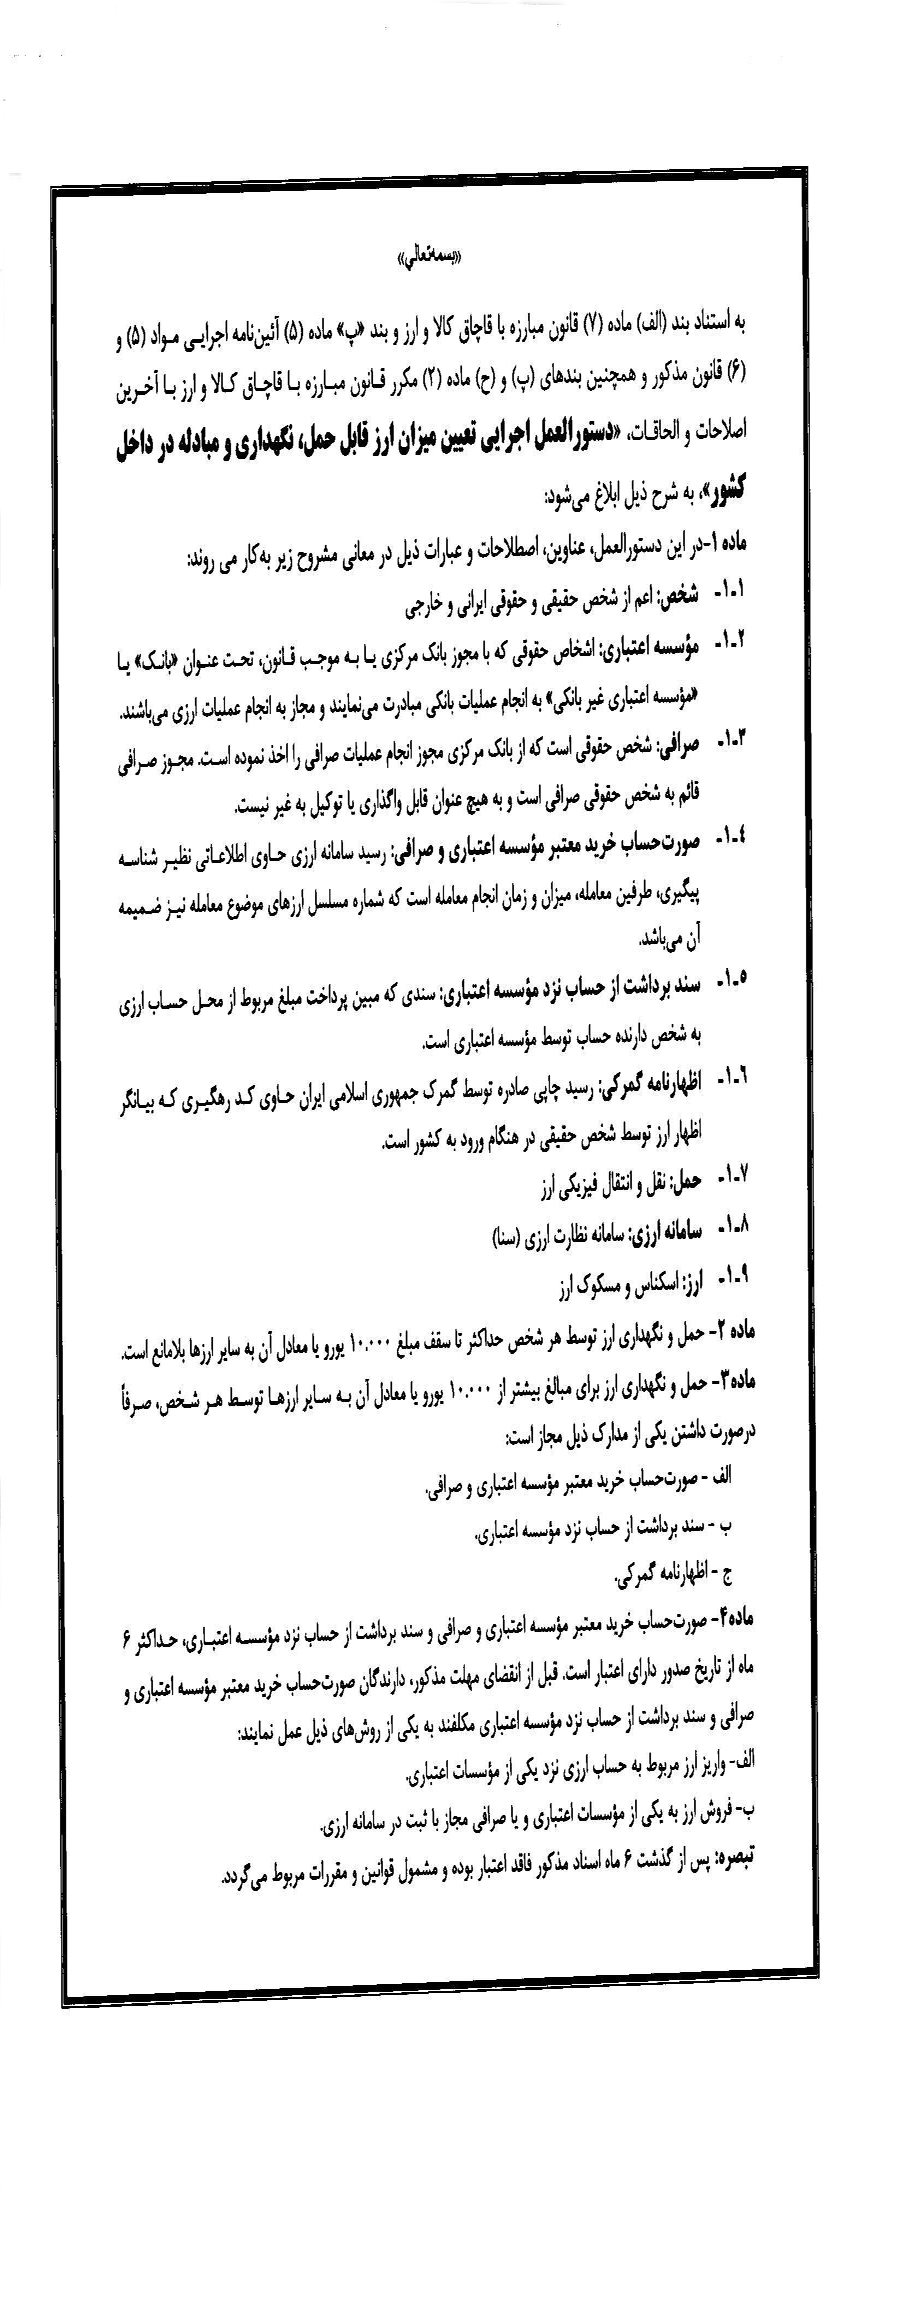 «بسمه‌تعالی»
به استناد بند (الف) ماده (۷) قانون مبارزه با قاچاق کالا و ارز و بند «پ» ماده (۵) آئین‌نامه اجرایی مواد (۵) و
(۶) قانون مذکور و همچنین بندهای (پ) و (ح) ماده (۲) مکرر قانون مبارزه با قاچاق کالا و ارز با آخرین
اصلاحات و الحاقات، «دستورالعمل اجرایی تعیین میزان ارز قابل حمل، نگهداری و مبادله در داخل
کشور»، به شرح ذیل ابلاغ می‌شود:
ماده ۱-در این دستورالعمل، عناوین، اصطلاحات و عبارات ذیل در معانی مشروح زیر به‌کار می روند:
۱-۱- شخص: اعم از شخص حقیقی و حقوقی ایرانی و خارجی
۱-۲- مؤسسه اعتباری: اشخاص حقوقی که با مجوز بانک مرکزی یا به موجب قانون، تحت عنوان «بانک» یا
«مؤسسه اعتباری غیر بانکی» به انجام عملیات بانکی مبادرت می‌نمایند و مجاز به انجام عملیات ارزی می‌باشند.
۱-۳- صرافی: شخص حقوقی است که از بانک مرکزی مجوز انجام عملیات صرافی را اخذ نموده است. مجوز صرافی
قائم به شخص حقوقی صرافی است و به هیچ عنوان قابل واگذاری یا توکیل به غیر نیست.
۱-۴- صورت‌حساب خرید معتبر مؤسسه اعتباری و صرافی: رسید سامانه ارزی حاوی اطلاعاتی نظیر شناسه
پیگیری، طرفین معامله، میزان و زمان انجام معامله است که شماره مسلسل ارزهای موضوع معامله نیز ضمیمه
آن می‌باشد.
۱-۵- سند برداشت از حساب نزد مؤسسه اعتباری: سندی که مبین پرداخت مبلغ مربوط از محل حساب ارزی
به شخص دارنده حساب توسط مؤسسه اعتباری است.
۱-۶- اظهارنامه گمرکی: رسید چاپی صادره توسط گمرک جمهوری اسلامی ایران حاوی کد رهگیری که بیانگر
اظهار ارز توسط شخص حقیقی در هنگام ورود به کشور است.
۱-۷- حمل: نقل و انتقال فیزیکی ارز
۱-۸- سامانه ارزی: سامانه نظارت ارزی (سنا)
۱-۹- ارز: اسکناس و مسکوک ارز
ماده ۲- حمل و نگهداری ارز توسط هر شخص حداکثر تا سقف مبلغ ۱۰.۰۰۰ یورو یا معادل آن به سایر ارزها بلامانع است.
ماده۳- حمل و نگهداری ارز برای مبالغ بیشتر از ۱۰.۰۰۰ یورو یا معادل آن به سایر ارزها توسط هر شخص، صرفاً
درصورت داشتن یکی از مدارک ذیل مجاز است:
الف - صورت‌حساب خرید معتبر مؤسسه اعتباری و صرافی.
ب - سند برداشت از حساب نزد مؤسسه اعتباری.
ج - اظهارنامه گمرکی.
ماده۴- صورت‌حساب خرید معتبر مؤسسه اعتباری و صرافی و سند برداشت از حساب نزد مؤسسه اعتباری، حداکثر ۶
ماه از تاریخ صدور دارای اعتبار است. قبل از انقضای مهلت مذکور، دارندگان صورت‌حساب خرید معتبر مؤسسه اعتباری و
صرافی و سند برداشت از حساب نزد مؤسسه اعتباری مکلفند به یکی از روش‌های ذیل عمل نمایند:
الف- واریز ارز مربوط به حساب ارزی نزد یکی از مؤسسات اعتباری.
ب- فروش ارز به یکی از مؤسسات اعتباری و یا صرافی مجاز با ثبت در سامانه ارزی.
تبصره: پس از گذشت ۶ ماه اسناد مذکور فاقد اعتبار بوده و مشمول قوانین و مقررات مربوط می‌گردد.